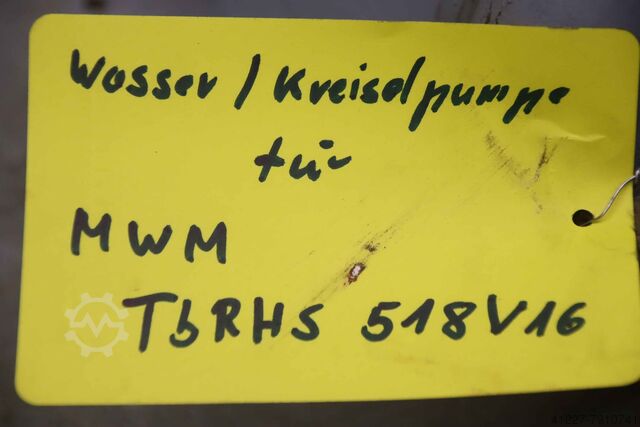 Wasser / Kreiselpumpe
für
MWM
TbRHS 518 V16